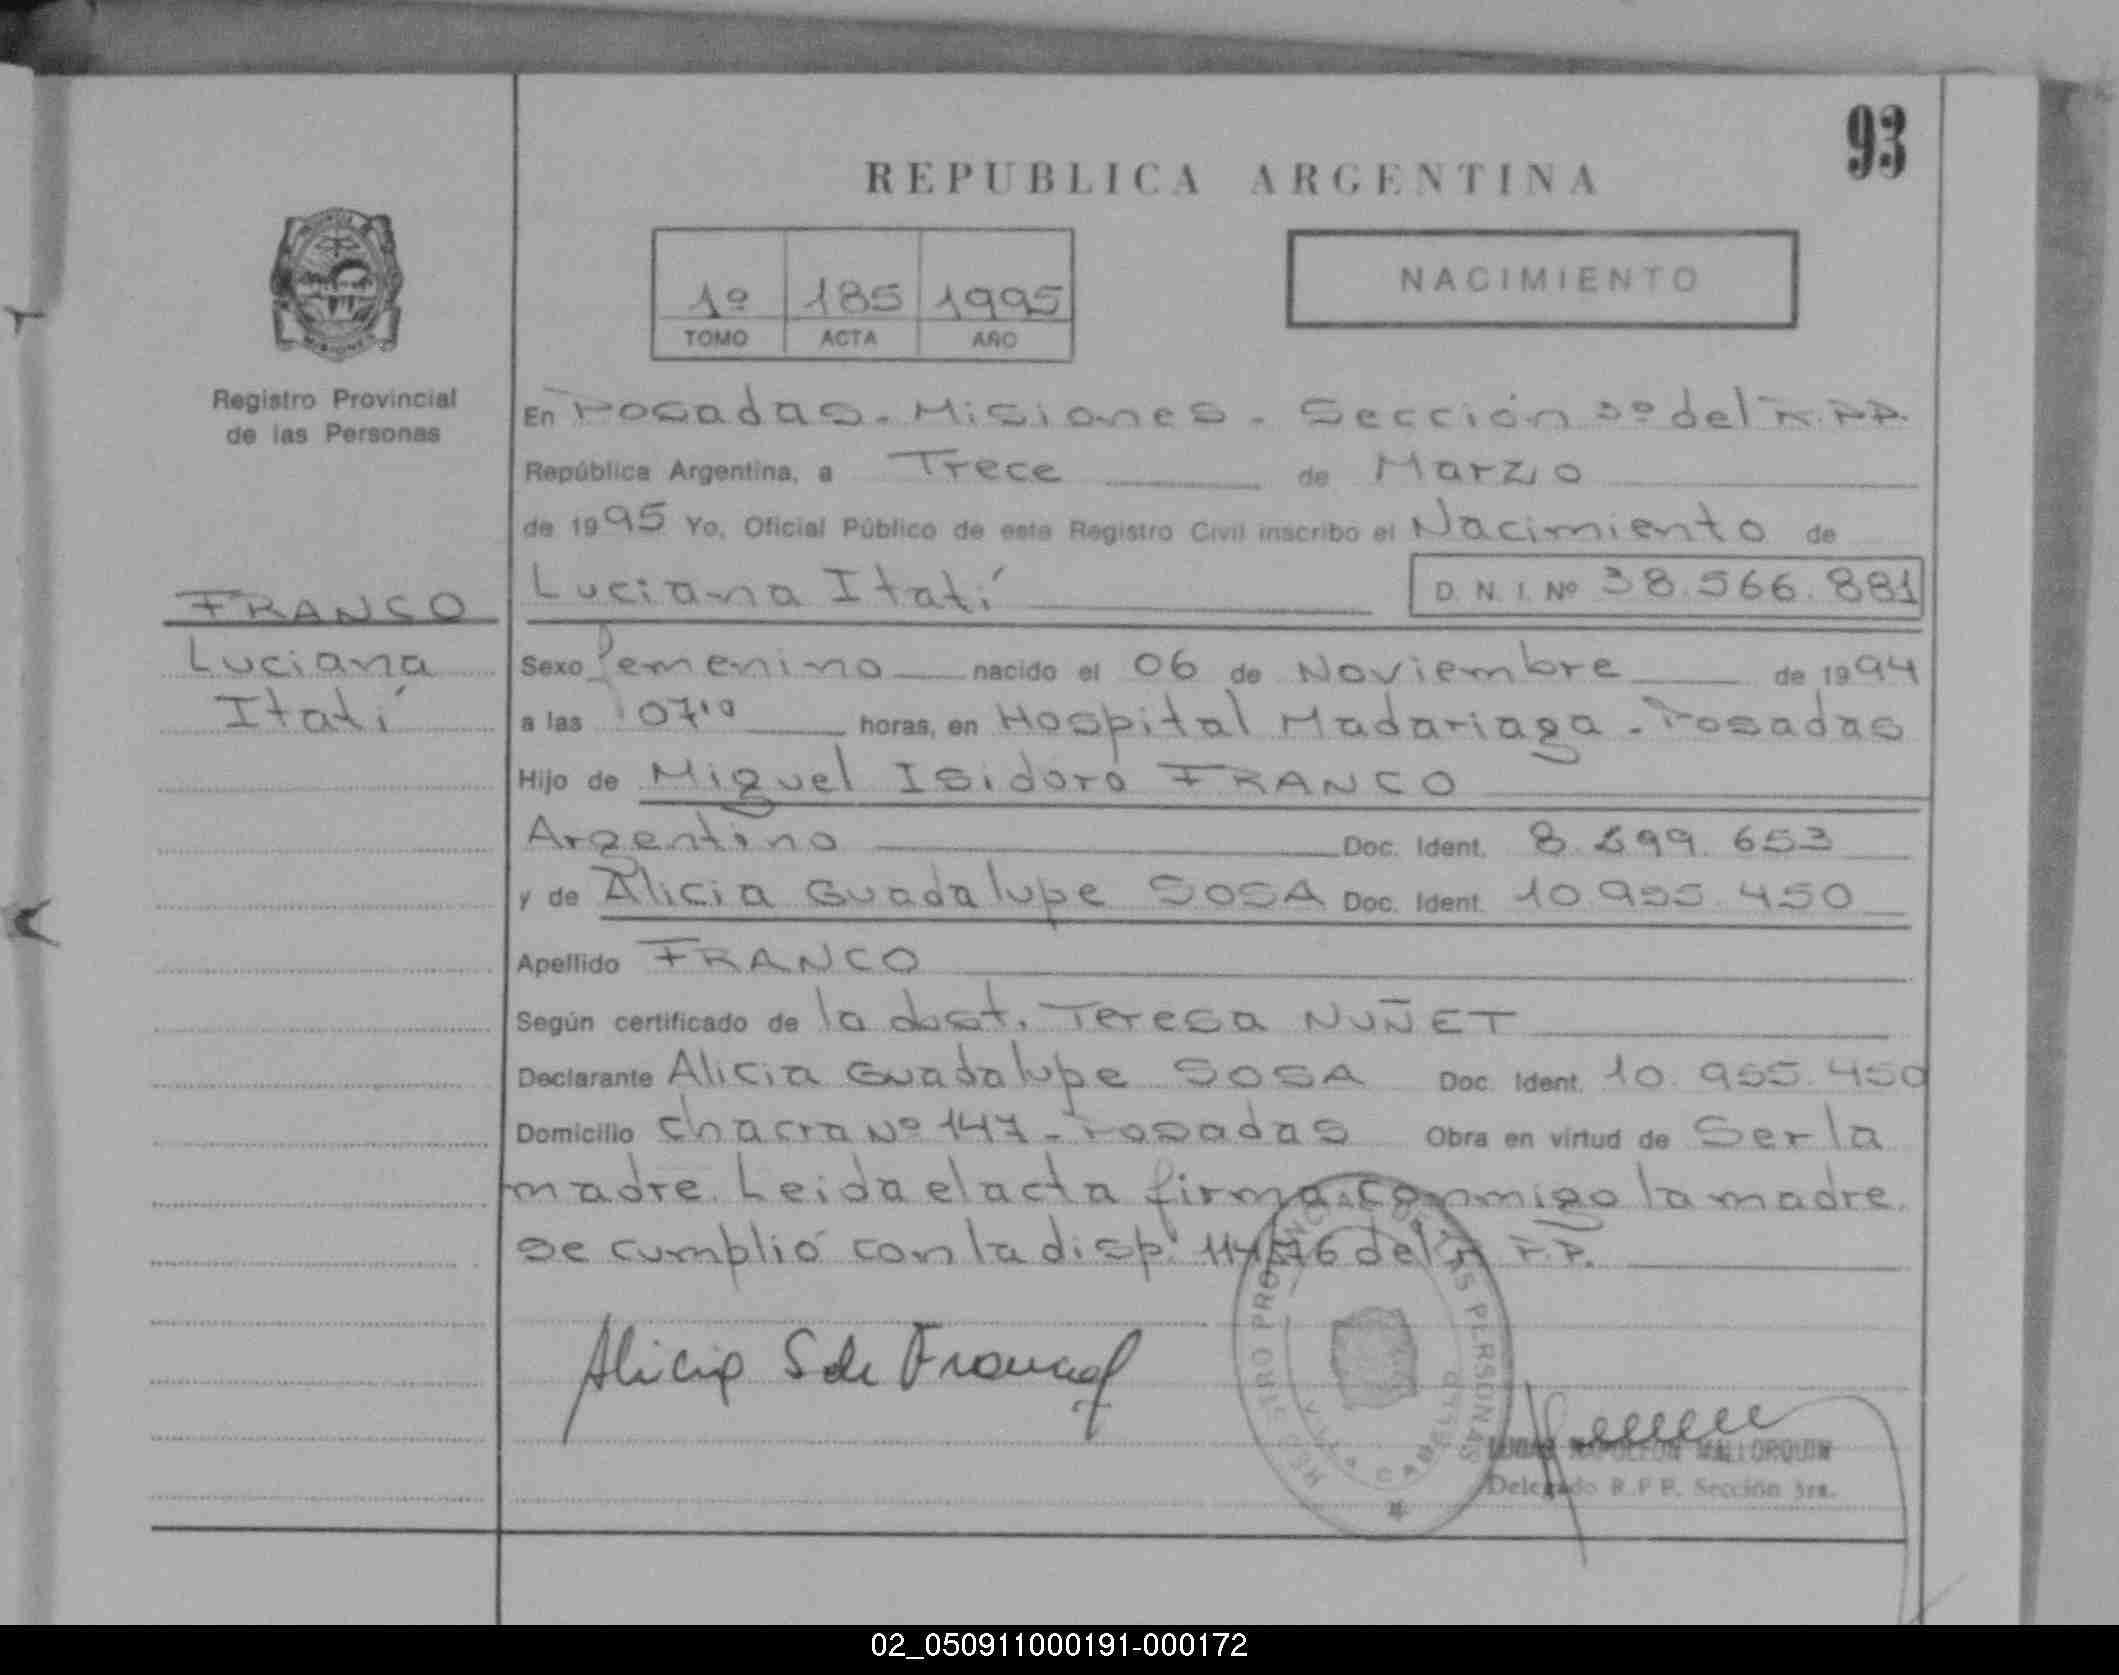 93
REPUBLICA ARGENTINA
1º 185 1995
TOMO ACTA AÑO
NACIMIENTO
MISIONES
Registro Provincial
de las Personas
FRANCO
Luciana
Itatí
En Posadas - Misiones - Sección 3º del R.P.P.
República Argentina, a Trece de Marzo
de 1995 Yo, Oficial Público de este Registro Civil inscribo el Nacimiento de
Luciana Itatí D. N. I. Nº 38.566.881
Sexo femenino nacido el 06 de Noviembre de 1994
a las 07,10 horas, en Hospital Madariaga - Posadas
Hijo de Miguel Isidoro FRANCO
Argentino Doc. Ident. 653
y de Alicia Guadalupe SOSA Doc. Ident. 10.955.450
Apellido FRANCO
Según certificado de la obst. Teresa NUÑET
Declarante Alicia Guadalupe SOSA Doc. Ident. 10.955.450
Domicilio chacra Nº 147 - Posadas Obra en virtud de Ser la
madre. Leida el acta firma conmigo la madre.
se cumplió con la disp. 114/76 del R.P.P.
Alicia S de Franco
REGISTRO PROVINCIAL DE LAS PERSONAS
VILLA CABELLO
NAPOLEON MALLORQUIN
Delegado R.P.P. Sección 3ra.
02_050911000191-000172